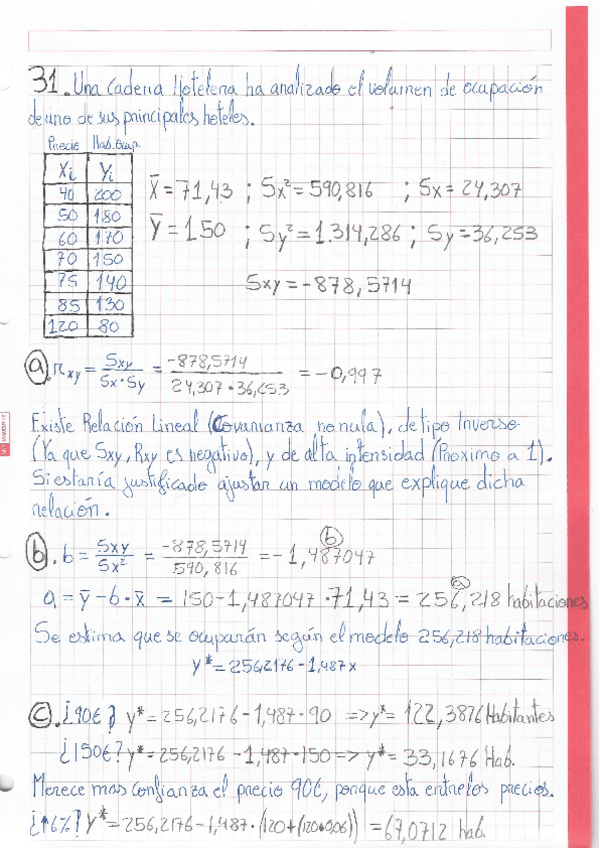 31. Una Cadena Hotelera ha analizado el volumen de ocupación
de uno de sus principales hoteles.
Precio Hab. Ocup.
Xi Yi
40 200
50 180
60 170
70 150
75 140
85 130
120 80
X̄ = 71,43 ; Sx² = 590,816 ; Sx = 24,307
Ȳ = 150 ; Sy² = 1.314,286 ; Sy = 36,253
Sxy = -878,5714
a. rxy = Sxy / Sx · Sy = -878,5714 / 24,307 · 36,253 = -0,997
Existe Relación Lineal (Covarianza no nula), de tipo Inverso
(Ya que Sxy, Rxy es negativo), y de alta intensidad (Proximo a 1).
Si estaría justificado ajustar un modelo que explique dicha
relación.
b. b = Sxy / Sx² = -878,5714 / 590,816 = -1,487047 (b)
a = ȳ - b · x̄ = 150 - 1,487047 · 71,43 = 256,218 habitaciones (a)
Se estima que se ocuparán según el modelo 256,218 habitaciones.
y* = 256,2176 - 1,487x
c. ¿90€? y* = 256,2176 - 1,487 · 90 => y* = 122,3876 Habitantes
¿150€? y* = 256,2176 - 1,487 · 150 => y* = 33,1676 Hab.
Merece mas confianza el precio 90€, porque esta entre los precios.
¿↑6%? y* = 256,2176 - 1,487 · (120 + (120 · 0,06)) = 67,0712 hab.